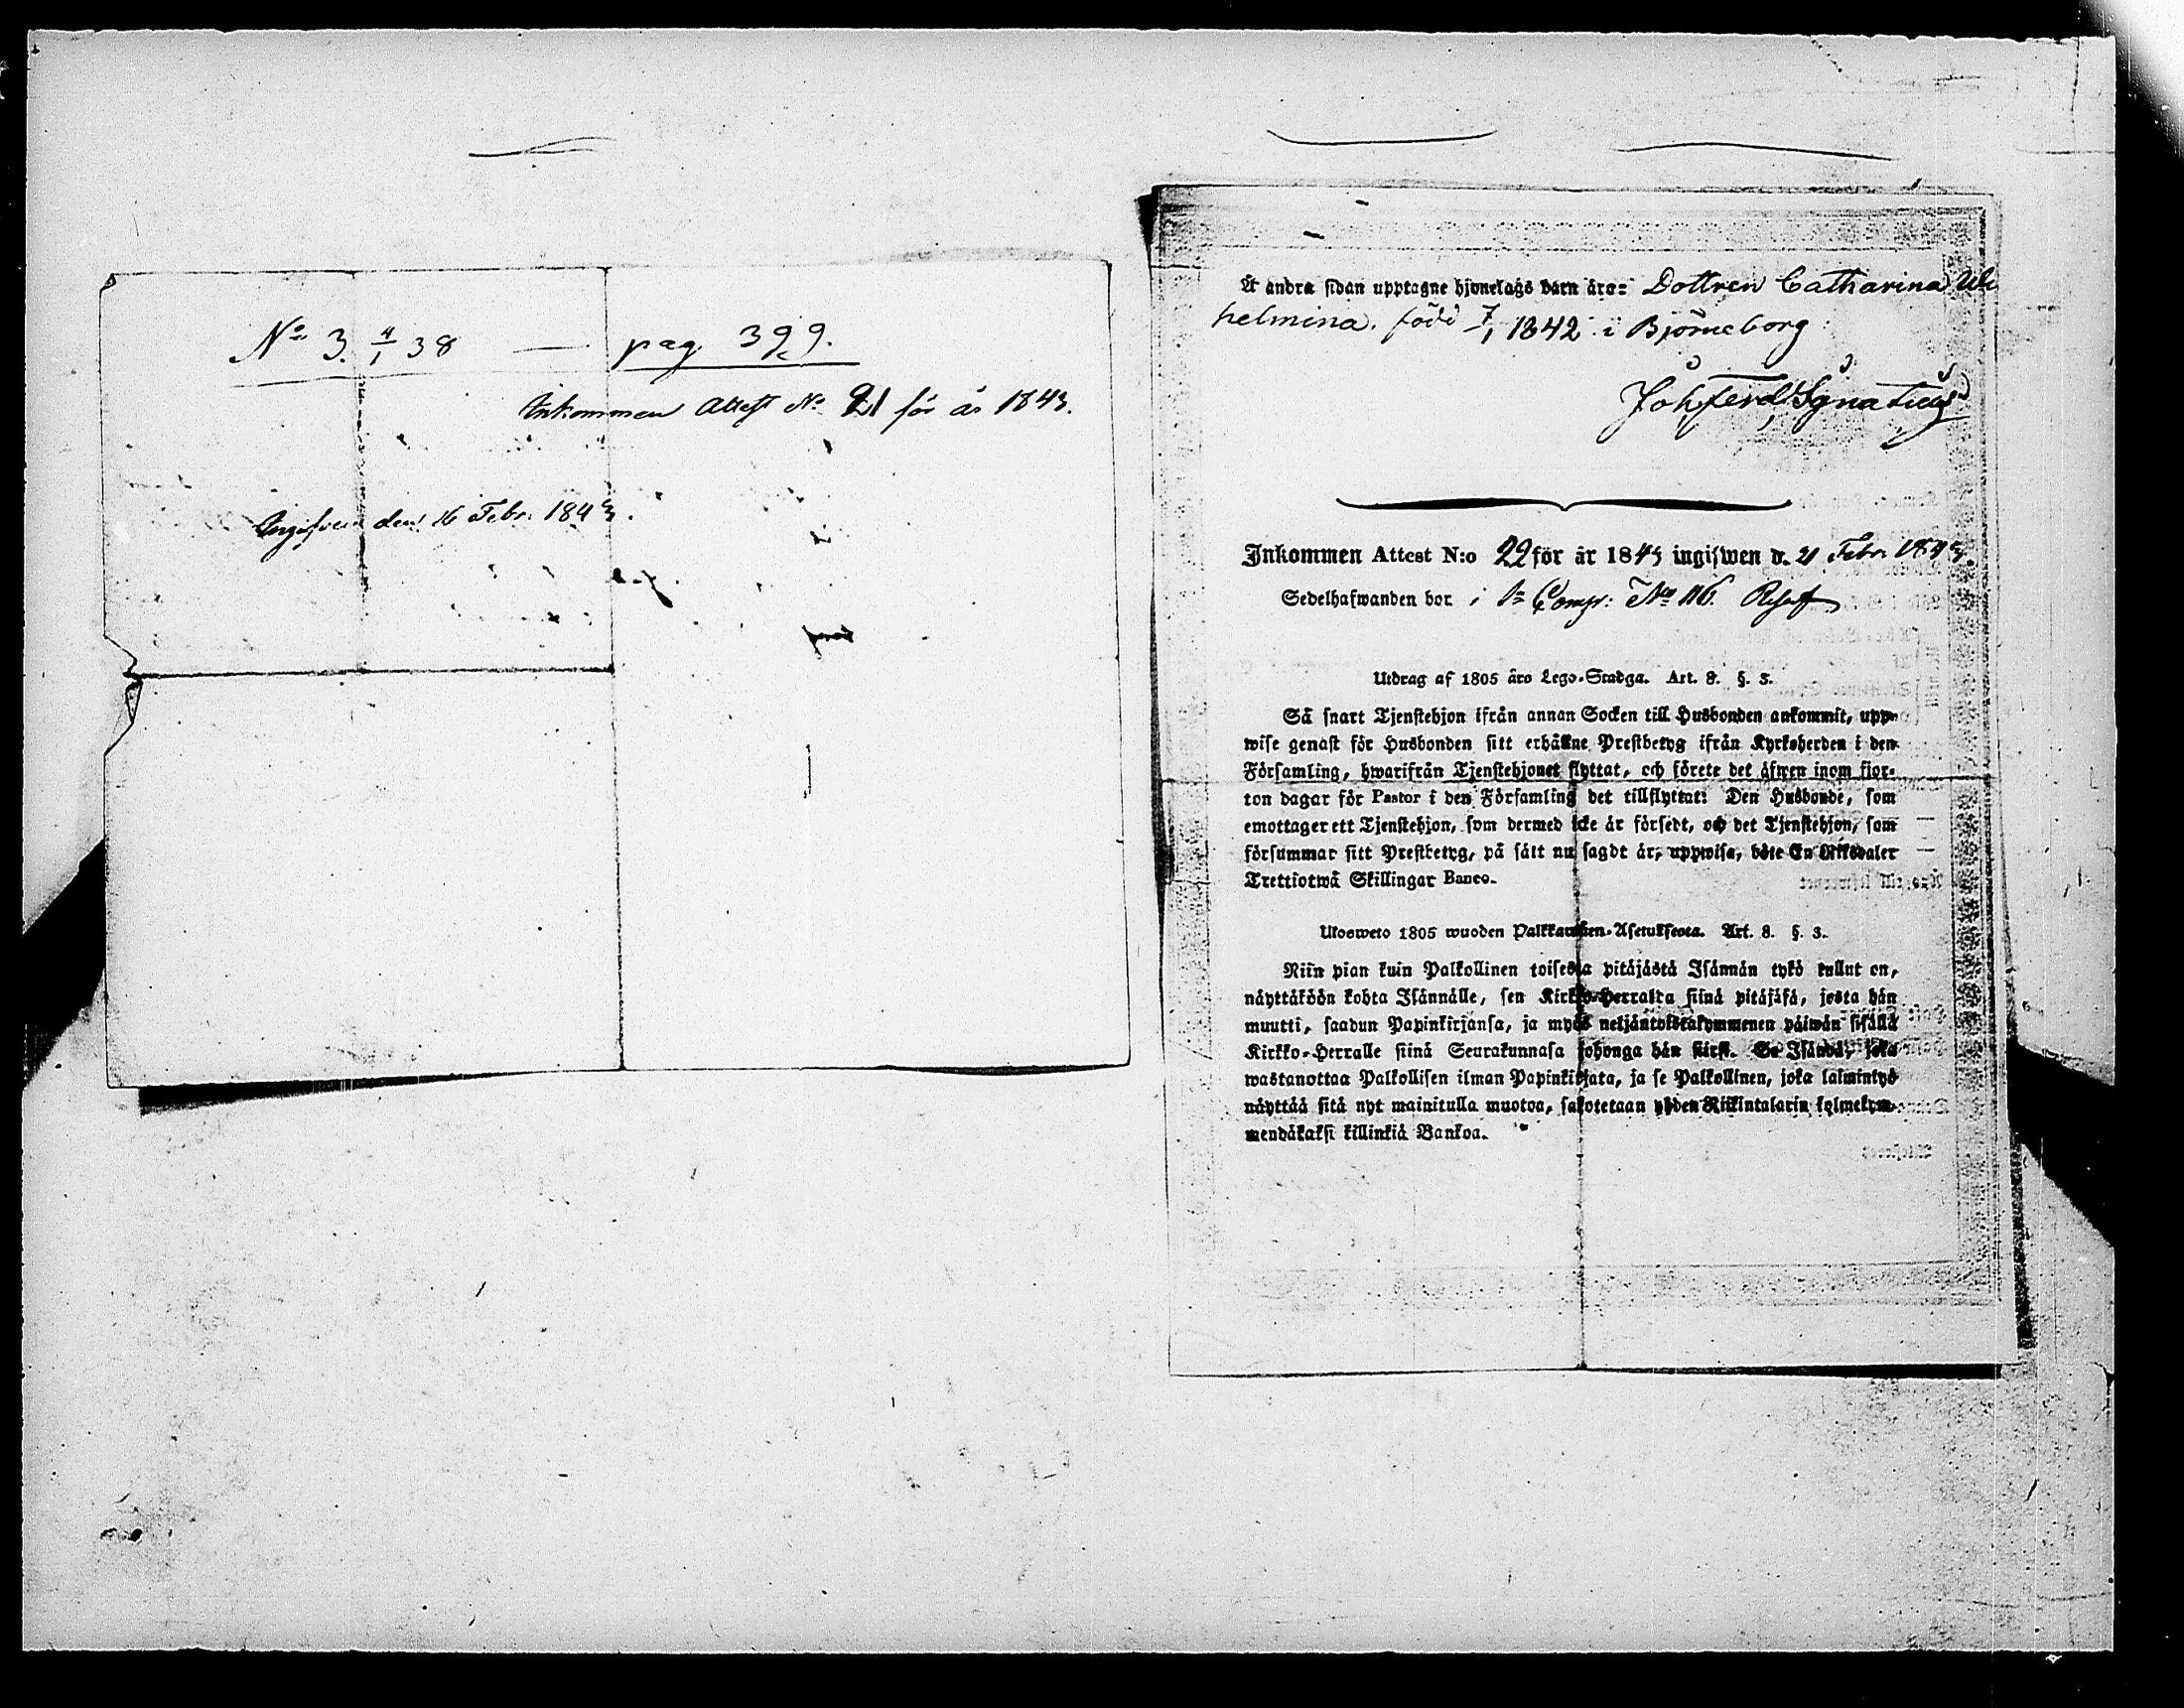 No 3. 4/1 38 — pag. 399.
Inkommen Attest No 21 för år 1843.
Ingifven den 16 Febr. 1843.
Å andra sidan upptagne hjonelags barn äro: Dottren Catharina Wil
helmina. född 7/1 1842 i Björneborg
Joh ferd Ignatius
Inkommen Attest N:o 22 för år 1843 ingifwen d. 21 Febr. 1843.
Sedelhafwanden bor i Comp: No 116.
Utdrag af 1805 åro Lego-Stadga. Art. 8. §. 3.
Så snart Tjenstehjon ifrån annan Socken till Husbonden ankommit, upp-
wise genast för Husbonden sitt erhållne Prestbetyg ifrån Kyrkoherden i den
Församling, hwarifrån Tjenstehjonet flyttat, och förete det äfwen inom fjor-
ton dagar för Pastor i den Församling det tillflyttat: Den Husbonde, som
emottager ett Tjenstehjon, som dermed icke är försedt, och det Tjenstehjon, som
försummar sitt Prestbetyg, på sätt nu sagdt är, uppwisa, böte En Riksdaler
Trettiotwå Skillingar Banco.
Ulosweto 1805 wuoden Palkkawäen-Asetuksesta. Art. 8. §. 3.
Niin pian kuin Palkollinen toisesta pitäjästä Isännän tykö tullut on,
näyttäköön kohta Isännälle, sen Kirkko-Herralta siinä pitäjäsä, josta hän
muutti, saadun Papinkirjansa, ja myös neljäntoistakymmenen päiwän sisällä
Kirkko-Herralle siinä Seurakunnasa johonga hän siirsi. Se Isändä, joka
wastanottaa Palkollisen ilman Papinkirjata, ja se Palkollinen, joka laimintyö
näyttää sitä nyt mainitulla muotoa, sakotetaan yhden Riikintalarin kolmekym-
mendäkaksi killinkiä Bankoa.